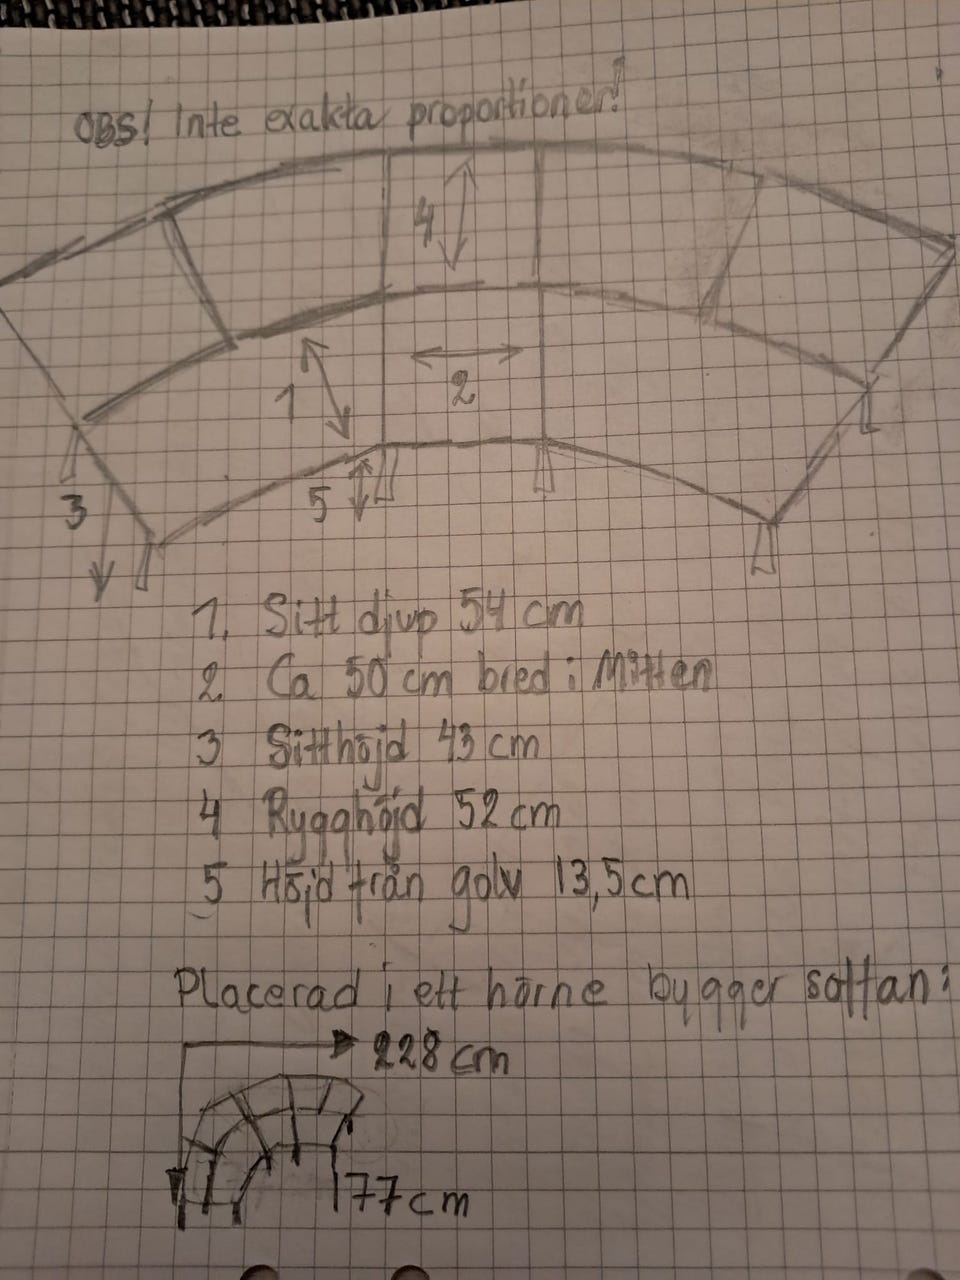 OBS! Inte exakta proportioner!
4
1
2
5
3
1. Sitt djup 54 cm
2 Ca 50 cm bred i Mitten
3 Sitthöjd 43 cm
4 Rygghöjd 52 cm
5 Höjd från golv 13,5cm
Placerad i ett hörne bygger soffan:
228 cm
177 cm